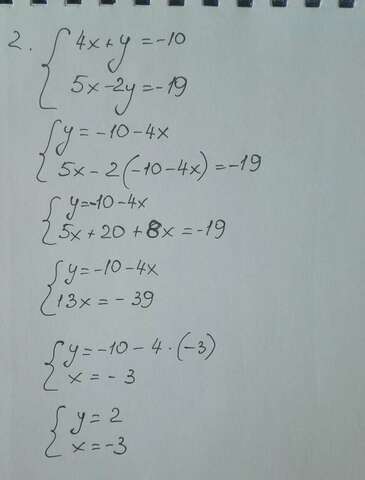 2. { 4x + y = -10
5x - 2y = -19
{ y = -10 - 4x
5x - 2(-10 - 4x) = -19
{ y = -10 - 4x
5x + 20 + 8x = -19
{ y = -10 - 4x
13x = -39
{ y = -10 - 4 · (-3)
x = -3
{ y = 2
x = -3